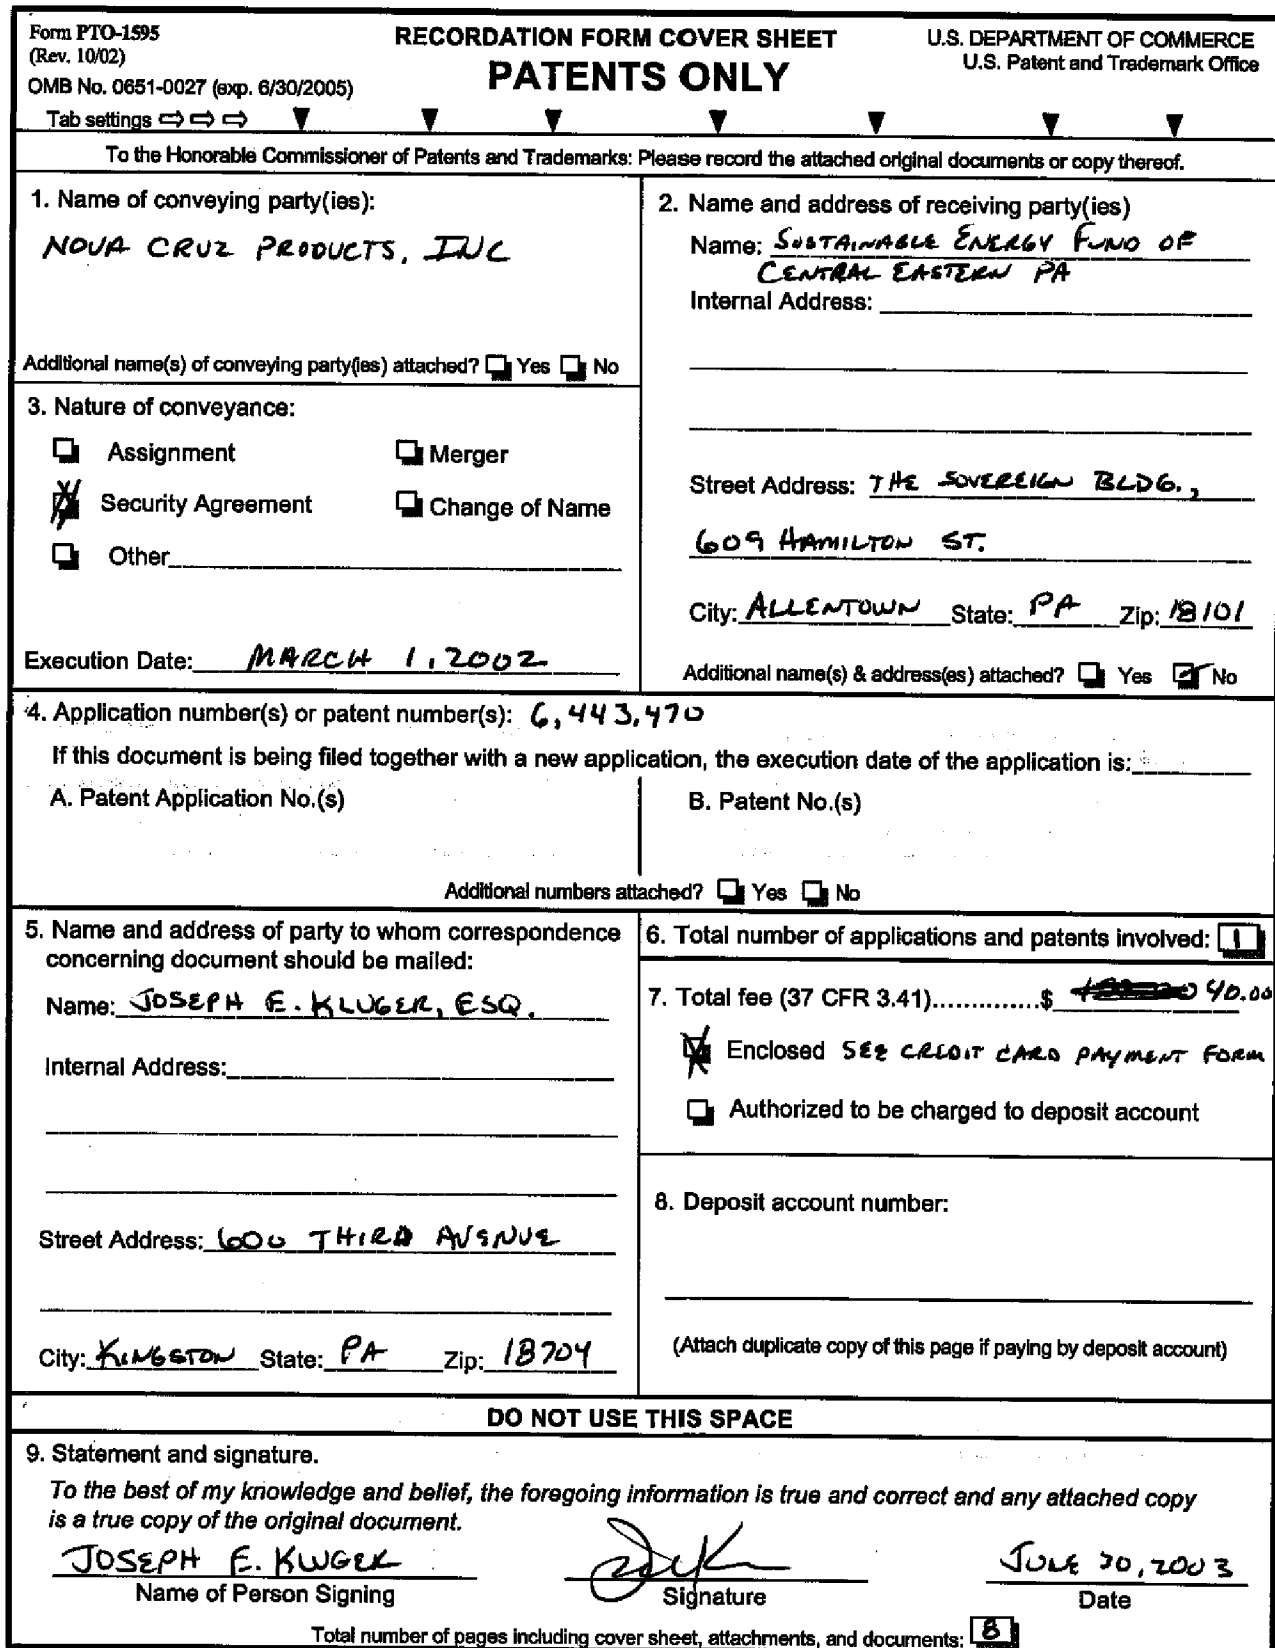 Form PTO-1595
(Rev. 10/02)
OMB No. 0651-0027 (exp. 6/30/2005)
Tab settings ⇨ ⇨ ⇨ ▼ ▼ ▼ ▼ ▼ ▼ ▼
RECORDATION FORM COVER SHEET
PATENTS ONLY
U.S. DEPARTMENT OF COMMERCE
U.S. Patent and Trademark Office
To the Honorable Commissioner of Patents and Trademarks: Please record the attached original documents or copy thereof.
1. Name of conveying party(ies):
NOVA CRUZ PRODUCTS, INC
Additional name(s) of conveying party(ies) attached? Yes No
2. Name and address of receiving party(ies)
Name: SUSTAINABLE ENERGY FUND OF
CENTRAL EASTERN PA
Internal Address:
Street Address: THE SOVEREIGN BLDG.,
609 HAMILTON ST.
City: ALLENTOWN State: PA Zip: 18101
Additional name(s) & address(es) attached? Yes No
3. Nature of conveyance:
Assignment Merger
Security Agreement Change of Name
Other
Execution Date: MARCH 1, 2002
4. Application number(s) or patent number(s): 6,443,470
If this document is being filed together with a new application, the execution date of the application is:
A. Patent Application No.(s) B. Patent No.(s)
Additional numbers attached? Yes No
5. Name and address of party to whom correspondence
concerning document should be mailed:
Name: JOSEPH E. KLUGER, ESQ.
Internal Address:
Street Address: 600 THIRD AVENUE
City: KINGSTON State: PA Zip: 18704
6. Total number of applications and patents involved: 1
7. Total fee (37 CFR 3.41)..............$ 40.00
Enclosed SEE CREDIT CARD PAYMENT FORM
Authorized to be charged to deposit account
8. Deposit account number:
(Attach duplicate copy of this page if paying by deposit account)
DO NOT USE THIS SPACE
9. Statement and signature.
To the best of my knowledge and belief, the foregoing information is true and correct and any attached copy
is a true copy of the original document.
JOSEPH E. KLUGER JUNE 30, 2003
Name of Person Signing Signature Date
Total number of pages including cover sheet, attachments, and documents: 8